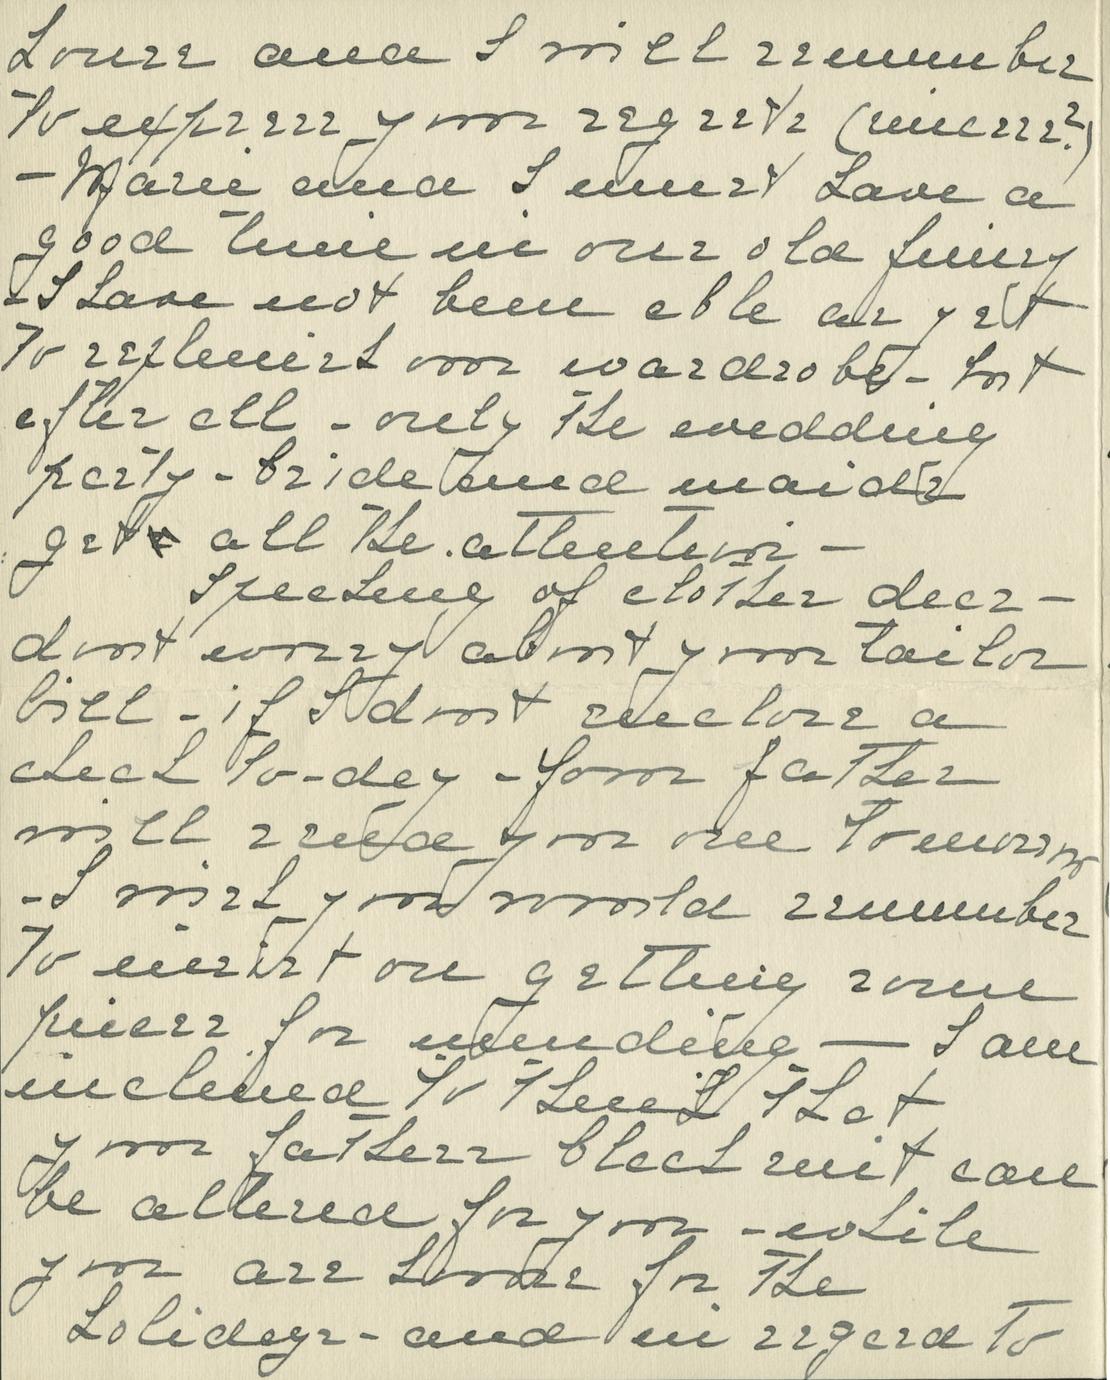 house and I will remember
to express your regrets (sincere?)
- Marie and I must have a
good time in our old finery
- I have not been able as yet
to replenish our wardrobe - but
after all - only the wedding
party - bride and maids
get all the attention -
Speaking of clothes dear -
don't worry about your tailor
bill - if I don't enclose a
check to-day - your father
will send you one tomorrow
- I wish you would remember
to insist on getting some
pieces for mending — I am
inclined to think that
your fathers black suit can
be altered for you - while
you are home for the
holidays - and in regard to